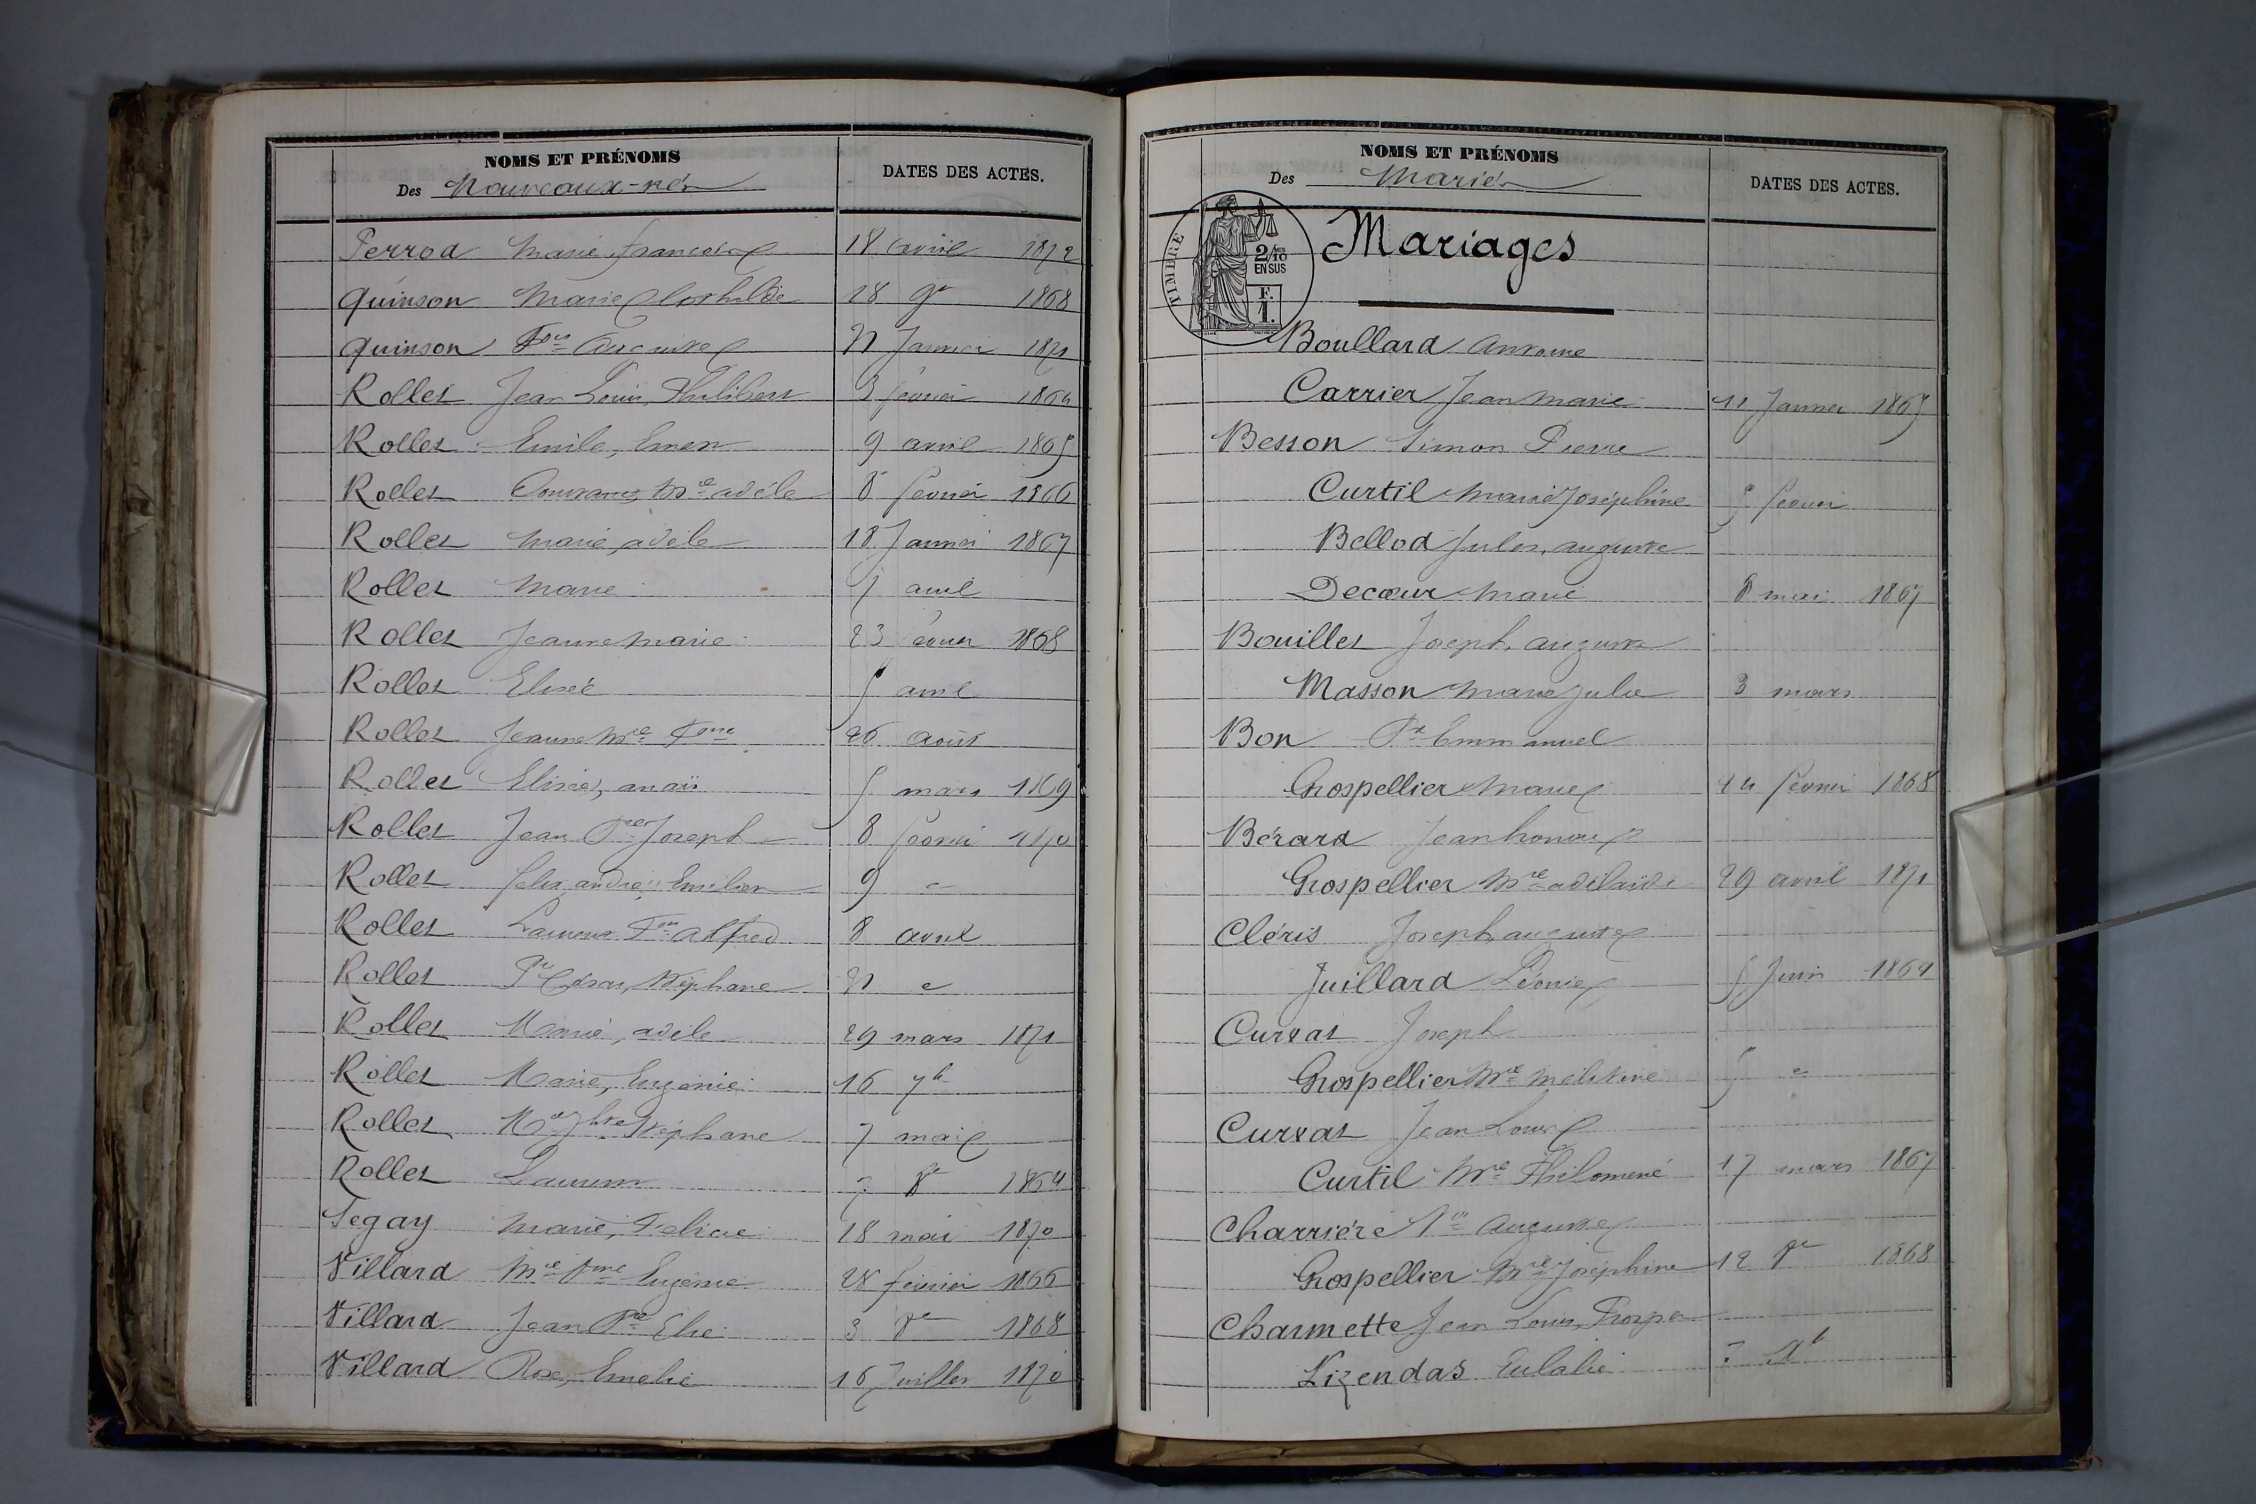 NOMS ET PRÉNOMS
Des Nouveaux-nés
DATES DES ACTES.
Perrod Marie, françoise 18 avril 1872
Quinson Marie Clothilde 18 9re 1868
Quinson Fois Auguste 21 Janvier 1871
Rollet Jean Louis, Philibert 3 février 1864
Rollet Emile, Emen 9 avril 1865
Rollet Constance, Mie adèle 8 février 1866
Rollet Marie, adèle 18 Janvier 1867
Rollet Marie 5 avril
Rollet Jeanne Marie 23 février 1868
Rollet Elisée 5 avril
Rollet Jeanne Mie Fçoise 26 août
Rollet Elisée, anaïs 5 mars 1869
Rollet Jean Pre Joseph 8 février 1870
Rollet felix, andré, Emilien 9 "
Rollet Laurent Fois alfred 8 avril
Rollet Pre César, Stéphane 21 "
Rollet Marie, adèle 29 mars 1871
Rollet Marie, Eugénie 16 7b
Rollet Mie Stéphanie 7 mai
Rollet Laurent 7 8re 1864
Segay Marie, Felicie 18 mai 1870
Villard Mie Eugénie 28 février 1866
Villard Jean Pre Elie 3 8re 1868
Villard Rose, Emelie 16 Juillet 1870
NOMS ET PRÉNOMS
Des Mariés
DATES DES ACTES.
TIMBRE
2/10
EN SUS
F.
1.
Mariages
Boullard Antoine
Carrier Jean Marie 11 Janvier 1865
Besson Simon Pierre
Curtil Marie Joséphine 5 février
Bellod Jules, auguste
Decœur Marie 8 mai 1867
Bouillet Joseph, auguste
Masson Marie Julie 3 mars
Bon Pre Emmanuel
Grospellier Marie 24 février 1868
Bérard Jean honoré
Grospellier Mie adélaïde 29 avril 1871
Cléris Joseph, auguste
Juillard Léonie 5 Juin 1864
Curvat Joseph
Grospellier Mie 5 "
Curvat Jean Louis
Curtil Mie Philomene 17 mars 1867
Charriére Auguste
Grospellier Mie Joséphine 12 8re 1868
Charmette Jean Louis, Prosper
Lizendas Eulalie 7 Xb